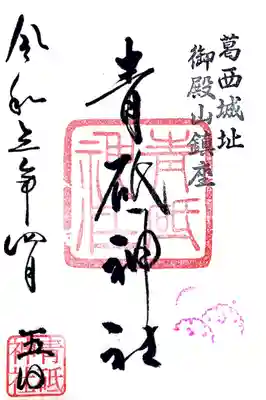 葛西城址
御殿山鎮座
青砥神社
青砥
神社
令和五年四月
五日
青砥
神社